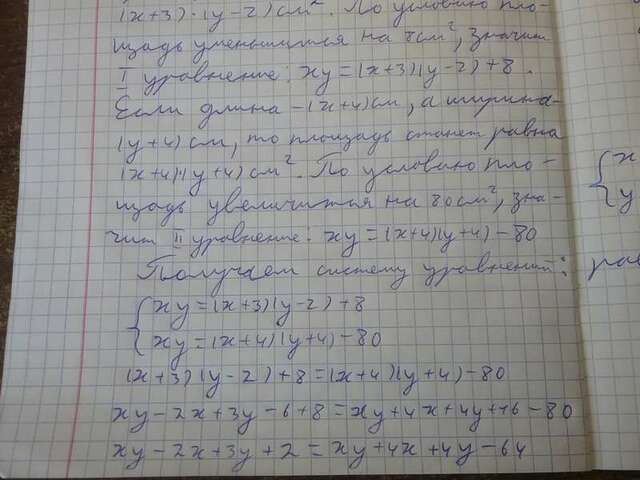 (x+3)·(y-2) см². По условию пло-
щадь уменьшится на 8см², значит
I уравнение: xy = (x+3)(y-2)+8.
Если длина - (x+4) см, а ширина-
(y+4) см, то площадь станет равна
(x+4)·(y+4) см². По условию пло-
щадь увеличится на 80 см², зна-
чит II уравнение: xy = (x+4)(y+4)-80
Получаем систему уравнений:
{ xy = (x+3)(y-2)+8
xy = (x+4)(y+4)-80
(x+3)(y-2)+8=(x+4)(y+4)-80
xy-2x+3y-6+8=xy+4x+4y+16-80
xy-2x+3y+2=xy+4x+4y-64
{ x
y
рав